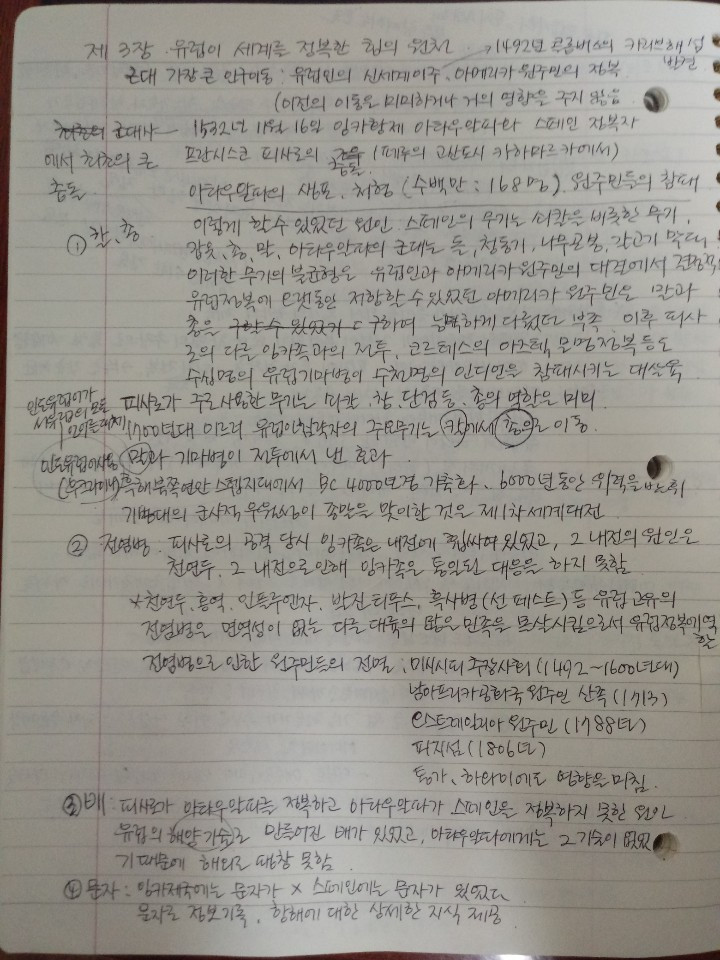 제 3장. 유럽이 세계를 정복한 힘의 원천. → 1492년 콜럼버스의 카리브해 섬 발견
근대 가장 큰 인구이동 : 유럽인의 신세계이주, 아메리카 원주민의 정복
(이전의 이동은 미미하거나 거의 영향을 주지 않음
최초의 근대사에서 최초의 큰 충돌
1532년 11월 16일 잉카황제 아타우알파와 스페인 정복자
프란시스코 피사로의 충돌 (페루의 고산도시 카하마르카에서)
아타우알파의 생포, 처형 (수백만 : 168명). 원주민들의 참패
① 칼, 총
이렇게 할 수 있었던 원인. 스페인의 무기는 쇠칼을 비롯한 무기,
갑옷, 총, 말, 아타우알파의 군대는 돌, 청동기, 나무곤봉, 갈고기 막대
이러한 무기의 불균형은 유럽인과 아메리카 원주민의 대결에서 결정적
유럽정복에 오랫동안 저항할 수 있었던 아메리카 원주민은 말과
총을 구할 수 있었거나 구하여 능숙하게 다뤘던 부족. 이후 피사
로의 다른 잉카족과의 전투, 코르테스의 아즈텍, 문명정복 등도
수십명의 유럽기마병이 수천명의 인디언을 참패시키는 대살육
인도유럽어가 서유럽의 모든 언어를 대체
피사로가 주로 사용한 무기는 쇠칼, 창, 단검등, 총의 역할은 미미
1700년대 이르러 유럽이침략자의 주요무기는 칼에서 총으로 이동.
인도유럽어사용 (우크라이나)
말과 기마병이 전투에서 낸 효과.
흑해북쪽연안 스텝지대에서 BC 4000년경 가축화. 6000년동안 위력을 발휘
기병대의 군사적 우위성이 종말을 맞이한 것은 제1차 세계대전
② 전염병 : 피사로의 공격 당시 잉카족은 내전에 휩싸여 있었고, 그 내전의 원인은
천연두, 그 내전으로 인해 잉카족은 통일된 대응을 하지 못함
*천연두, 홍역, 인플루엔자, 발진티푸스, 흑사병(선 페스트) 등 유럽 고유의
전염병은 면역성이 없는 다른 대륙의 많은 민족을 몰살시킴으로서 유럽정복에 역할
전염병으로 인한 원주민들의 전멸 : 미시시피 추장사회 (1492~1600년대)
남아프리카공화국 원주민 산족 (1713)
오스트레일리아 원주민 (1788년)
피지섬 (1806년)
통가, 하와이에도 영향을 미침.
③ 배 : 피사로가 아타우알파를 정복하고 아타우알파가 스페인을 정복하지 못한 원인.
유럽의 해양기술로 만들어진 배가 있었고, 아타우알파에게는 그 기술이 없었
기 때문에 해외로 대항 못함.
④ 문자 : 잉카제국에는 문자가 × 스페인에는 문자가 있었다.
문자로 정보기록, 항해에 대한 상세한 지식 제공